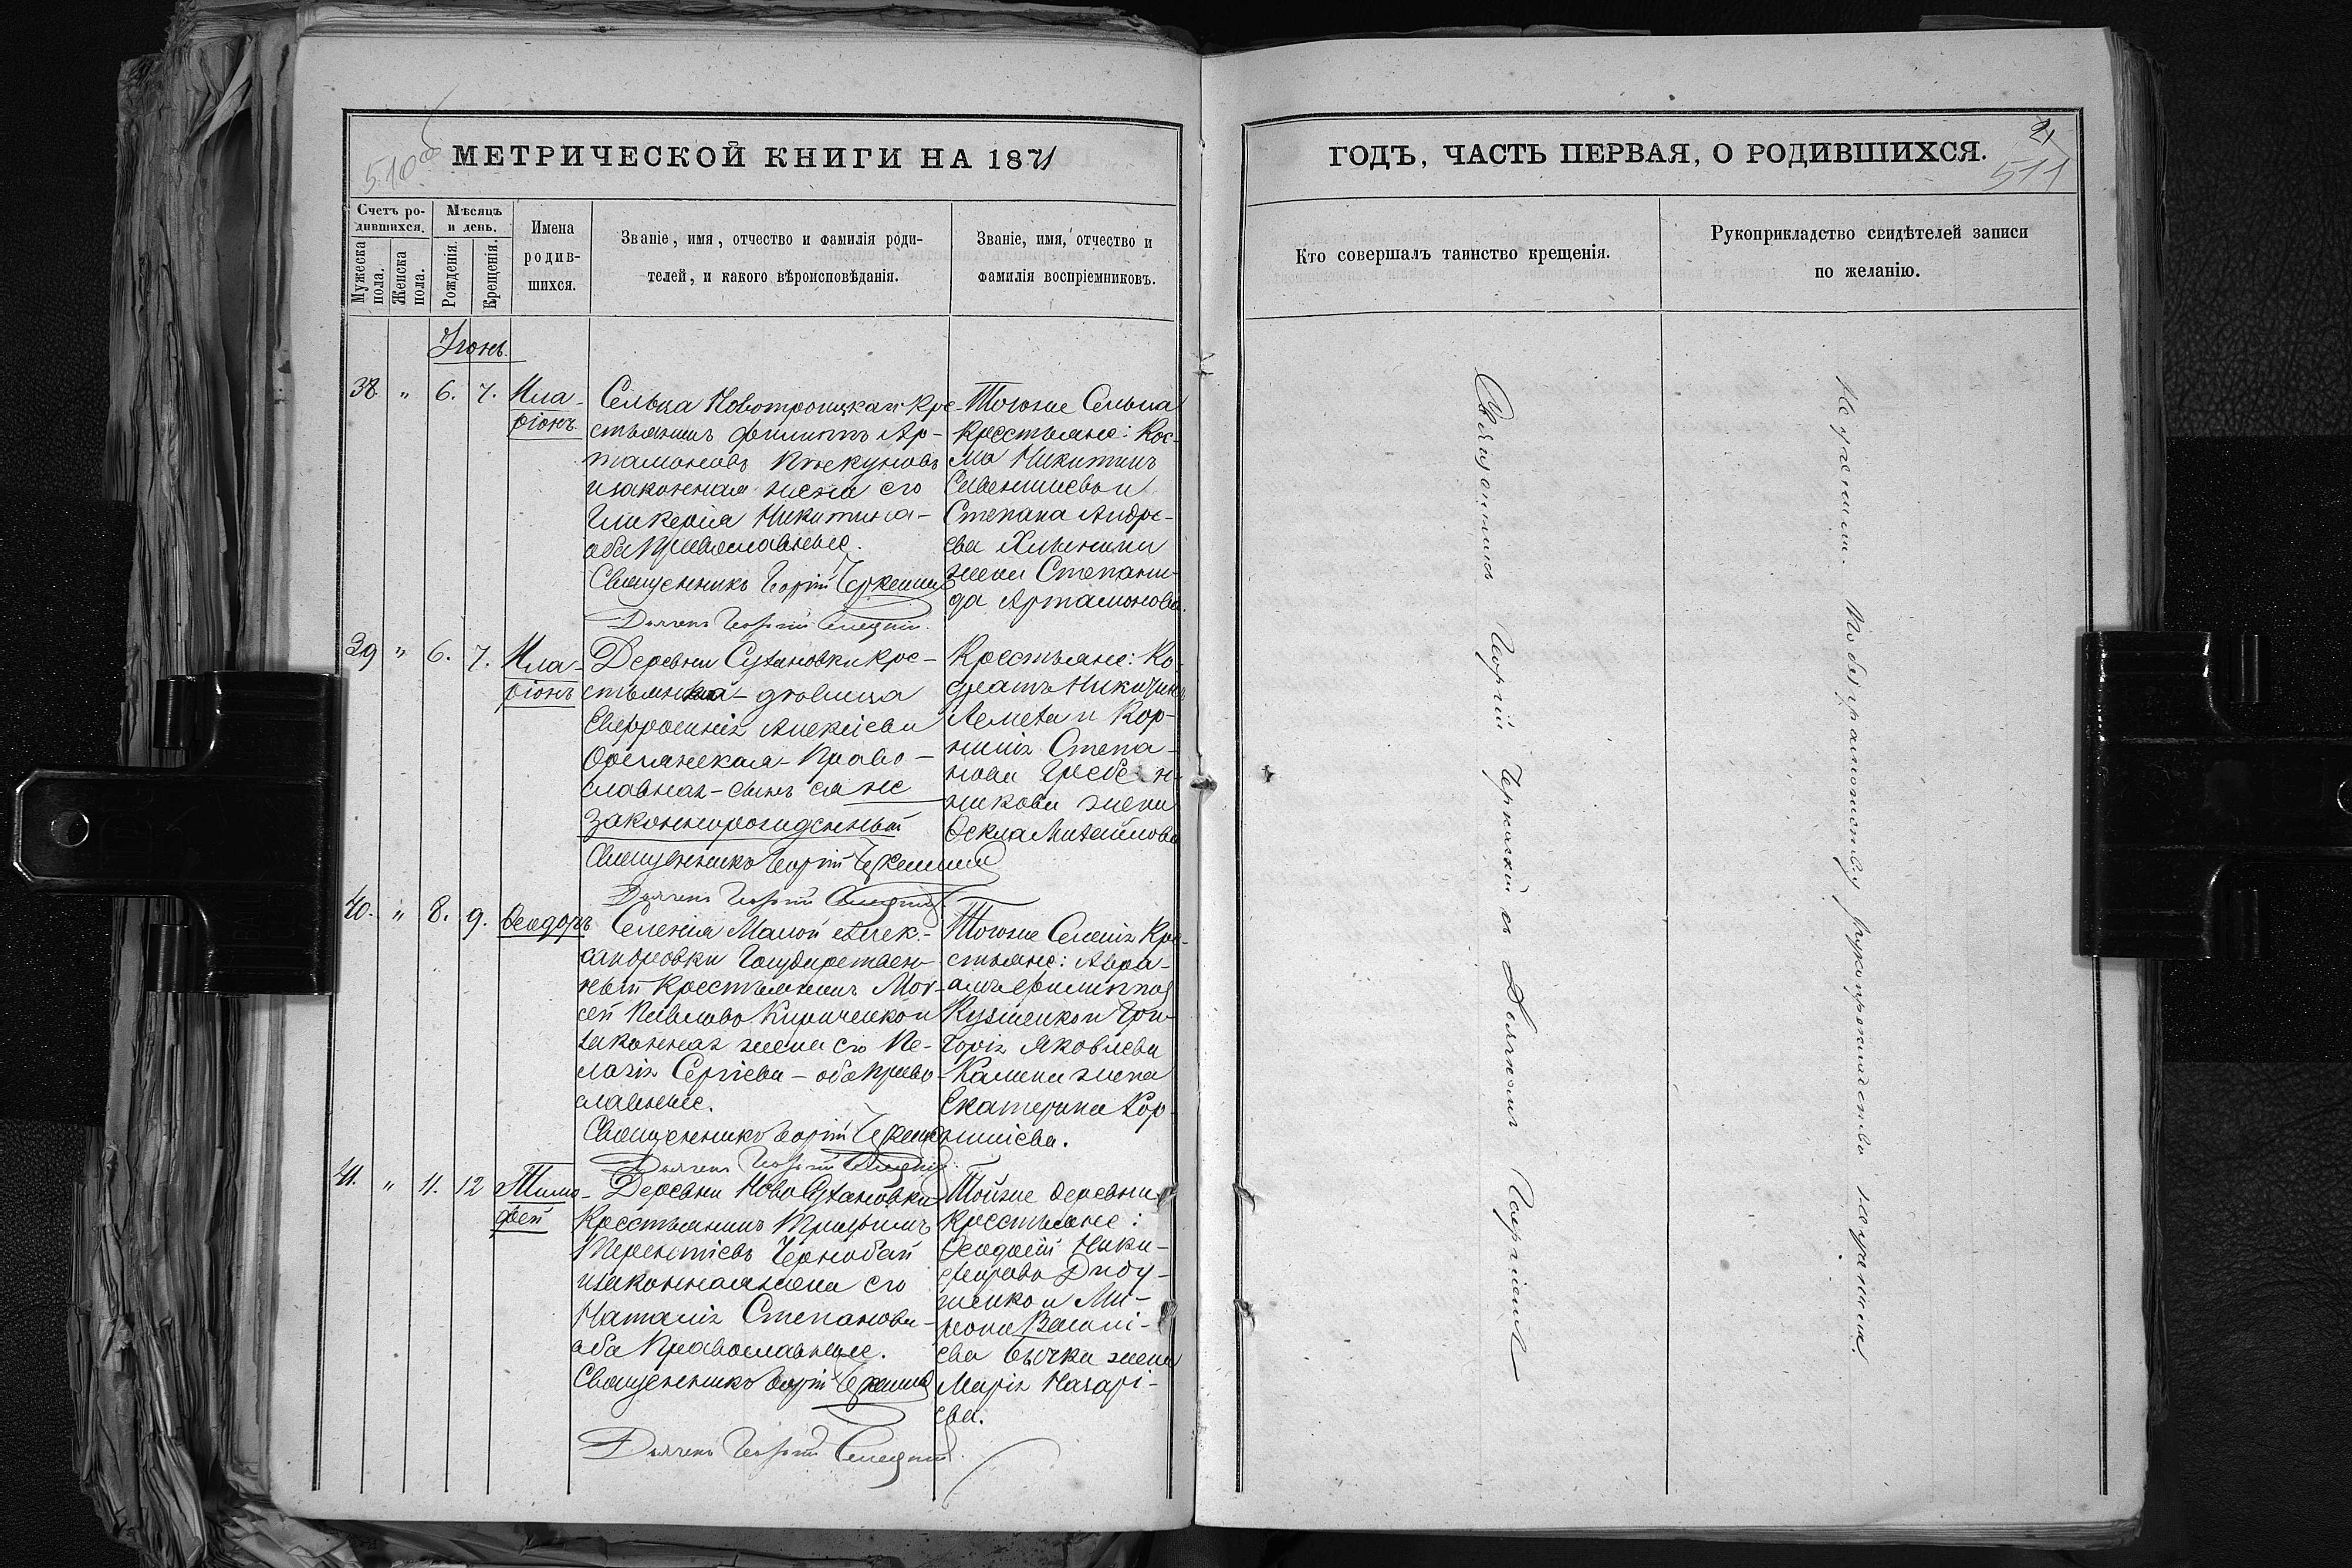 510 об
МЕТРИЧЕСКОЙ КНИГИ НА 1871
Счетъ ро-
дившихся.
Мужеска
пола.
Женска
пола.
Мѣсяцъ
и день.
Рожденія.
Крещенія.
Имена
родив-
шихся.
Званіе, имя, отчество и фамилія роди-
телей, и какого вѣроисповѣданія.
Званіе, имя, отчество и
фамилія воспріемниковъ.
Іюнь.
38 " 6. 7.
Ила-
ріонъ.
Сельца Новотроицкаго Кре-
стьянинъ Филиппъ Ар-
тамоновъ
и законная жена его
Гликерія Никитина-
оба Православные.
Священникъ Георгій Черкаскій
Дьячекъ Георгій
Тогоже Сельца
Крестьяне: Кос-
ма Никитинъ
и
Степана Андре-
ева
жена Степани-
да Артамонова.
39 " 6. 7.
Ила-
ріонъ
Деревни Сухановки кре-
стьянка-дѣвица
Евфросинія Алексіева
Право-
славная-сынъ ея не
законнорожденный
Священникъ Георгій Черкаскій
Дьячекъ Георгій
Крестьяне: Ко-
дратъ Никитинъ
Лемеха и Кор-
нилія Степа-
нова Гребен-
никова жена
Ѳекла Михайлова
40. " 8. 9.
Ѳеодоръ
Селенія Малой Алек-
сандровки Государствен-
ный Крестьянинъ Мои-
сей Павловъ Кириченко и
законная жена его Пе-
лагія Сергіева - оба Право-
славные.
Священникъ Георгій Черкаскій
Дьячекъ Георгій
Тогоже Селенія Кре-
стьяне: Авра-
амъ Филипповъ
Кузменко и Гри-
горія Яковлева
Калины жена
Екатерина Кор-
ниліева.
41. " 11. 12
Тимо-
фей
Деревни Ново Сухановки
Крестьянинъ Трифилъ
Терентіевъ Чернобай
и законная жена его
Наталія Степанова-
оба Православные.
Священникъ Георгій Черкаскій
Дьячекъ Георгій
Тойже деревни
Крестьяне:
Ники-
форовъ
и Ми-
рона Васили-
ева Бычка жена
Марія Назарі-
ева.
ГОДЪ, ЧАСТЬ ПЕРВАЯ, О РОДИВШИХСЯ.
511
Кто совершалъ таинство крещенія.
Рукоприкладство свидѣтелей записи
по желанію.
Священникъ Георгій Черкаскій съ Дьячкомъ
По безграмотству рукоприкладства не учинили.